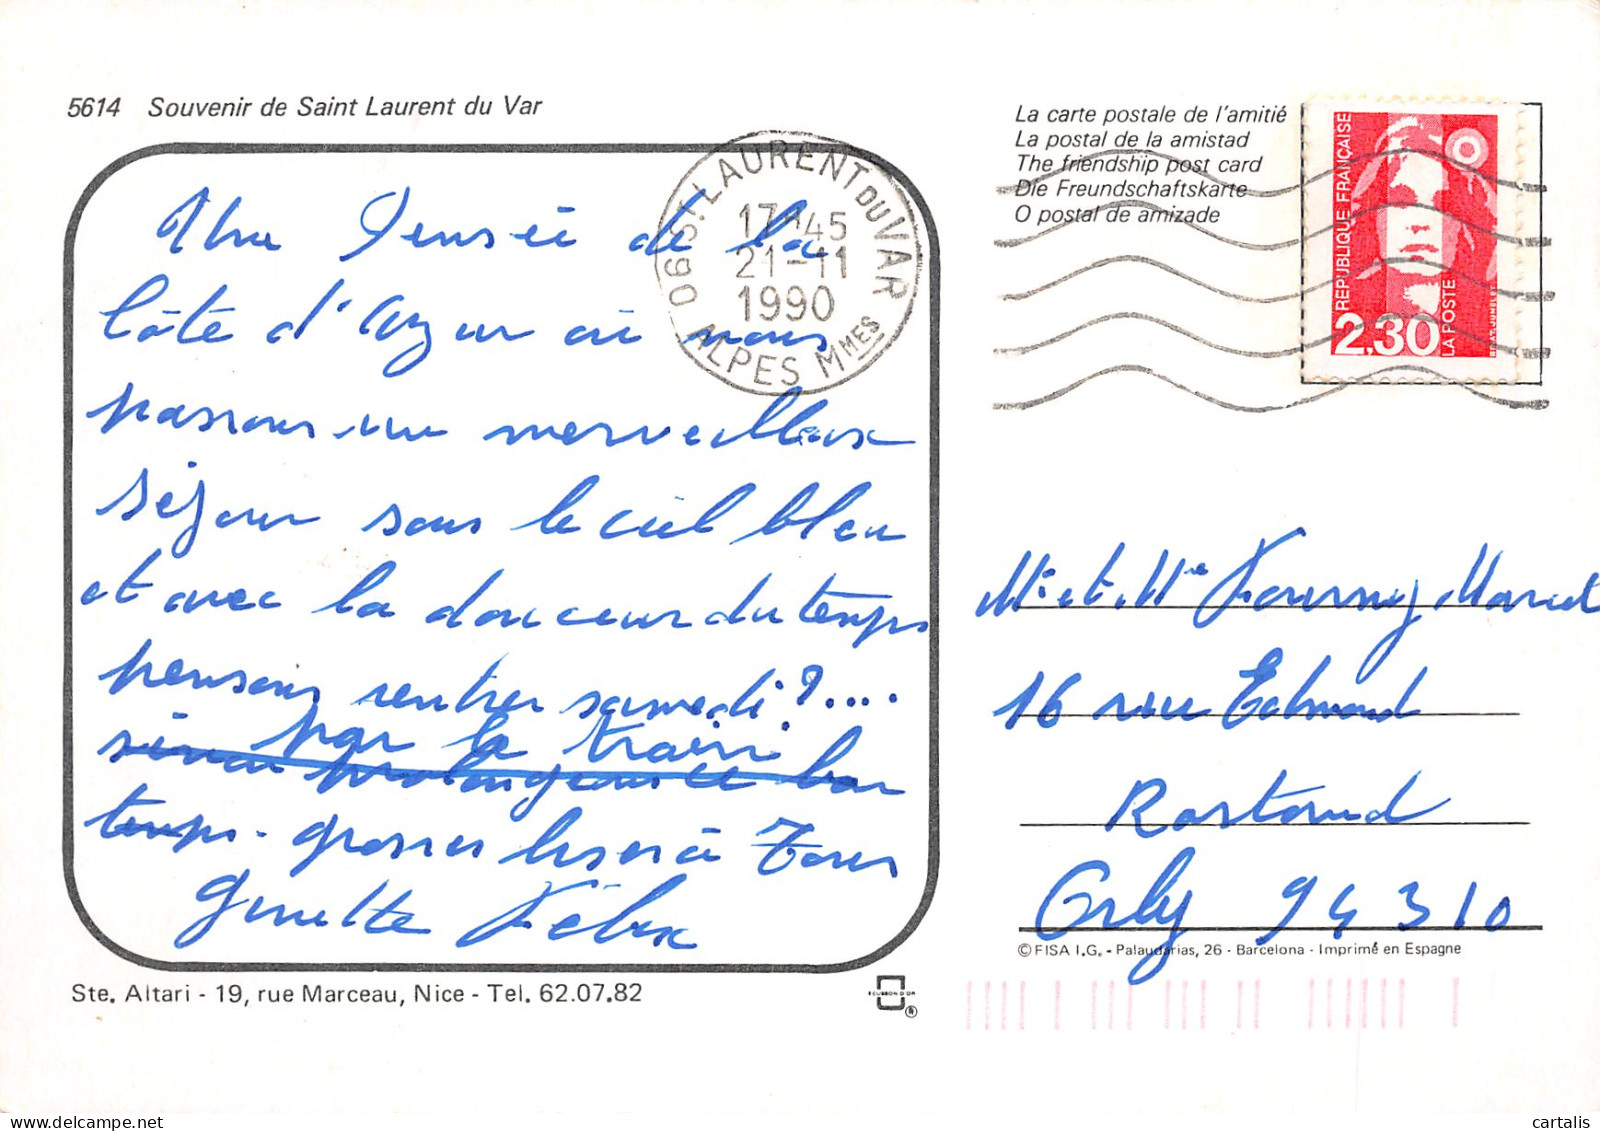 5614 Souvenir de Saint Laurent du Var
Une Pensée de la
Côte d'Azur où nous
passons un merveilleux
séjour sous le ciel bleu
et avec la douceur du temps
pensons rentrer samedi ?....
par le train.
sinon prolongeons le bon
temps. grosses bises à Tous
Ginette Félix
Ste. Altari - 19, rue Marceau, Nice - Tel. 62.07.82
ECUSSON D'OR
®
06 ST LAURENT DU VAR
17H45
21-11
1990
ALPES MMES
La carte postale de l'amitié
La postal de la amistad
The friendship post card
Die Freundschaftskarte
O postal de amizade
REPUBLIQUE FRANÇAISE
2,30
LA POSTE
Mr et Mme Fournez Marcel
16 rue Edmond
Rostand
Orly 94310
© FISA I.G. - Palaudarias, 26 - Barcelona - Imprimé en Espagne
cartalis